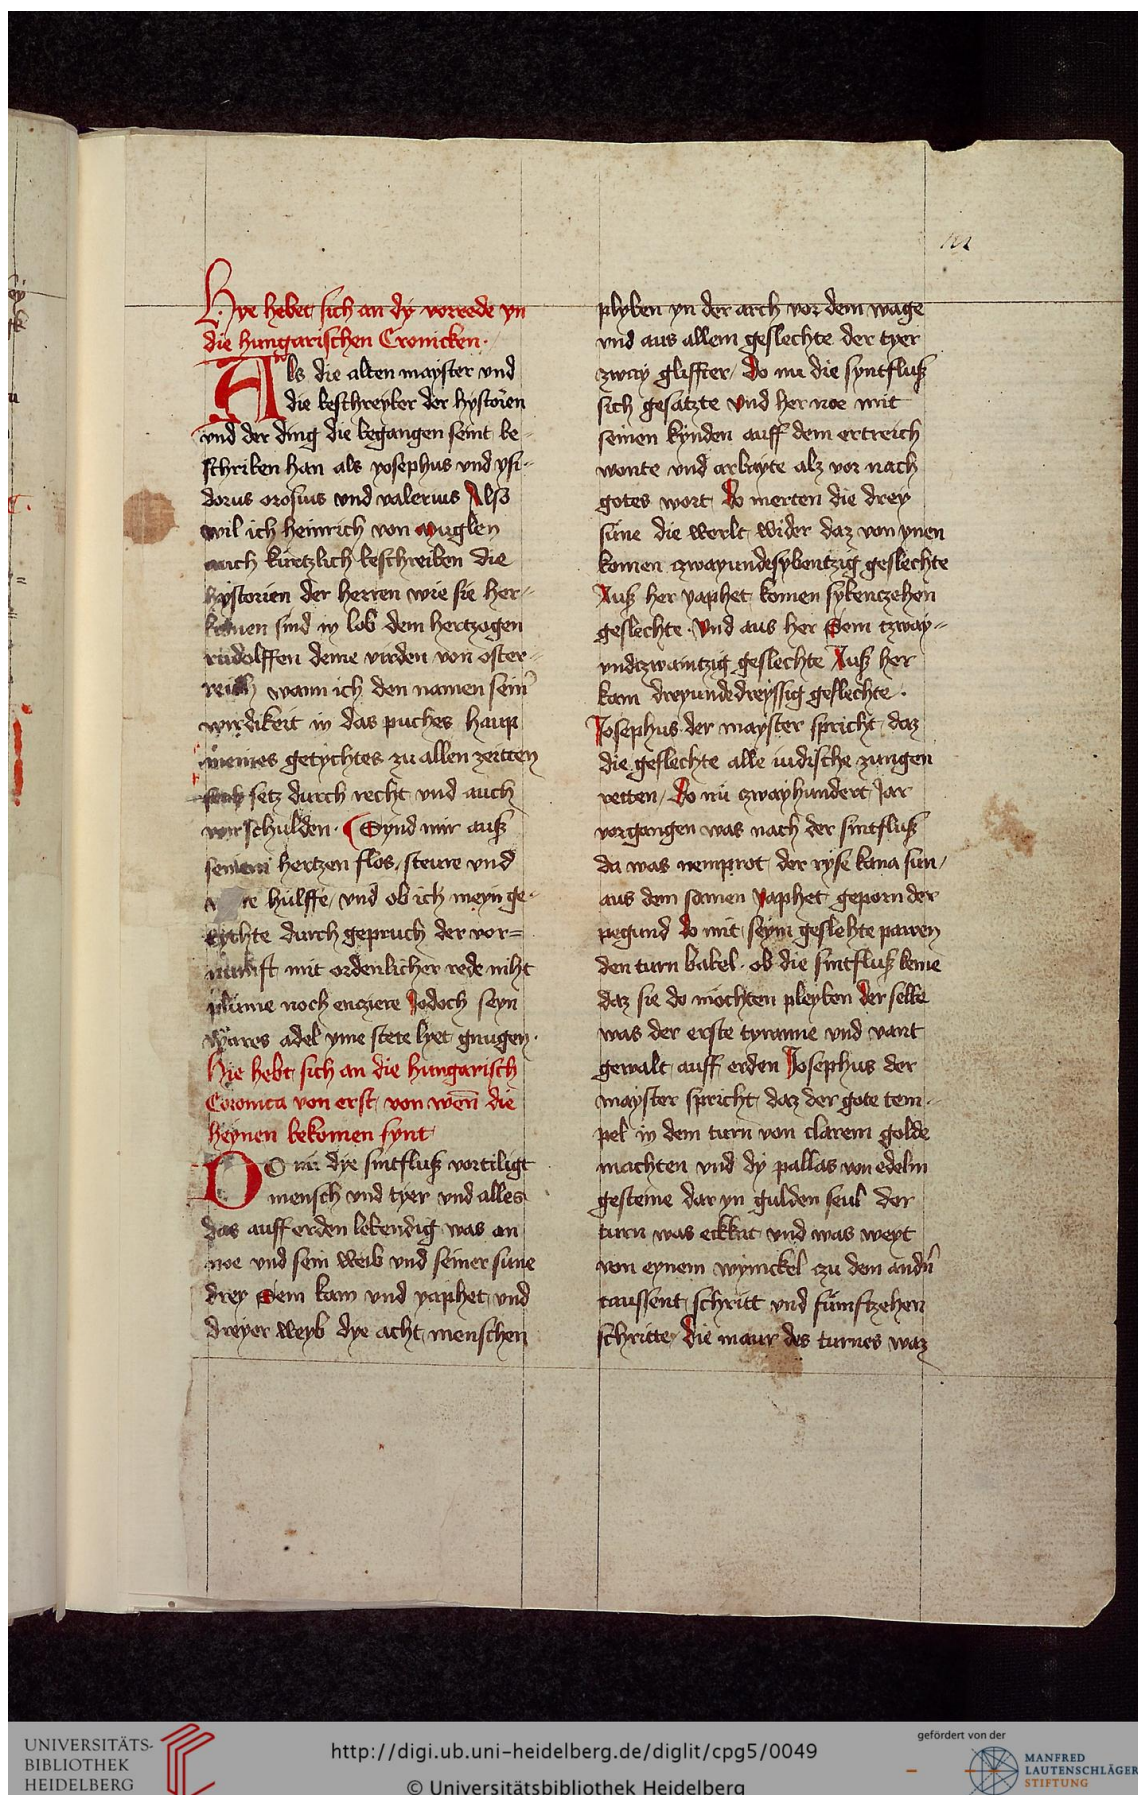 Hye hebet sich an dy vorrede yn
die hungarischen Cronicken.
Als die alten mayster und
die beschreyber der hystorien
vnd der ding die begangen seint be-
schriben han als yosephus vnd ysi-
dorus orosius vnd valerius Also
wil ich heinrich von muglen
auch kürtzlich beschreiben die
hystorien der herren wie sie her-
komen sind in lob dem hertzogen
rudolffen deme virden von oster-
reich wann ich den namen sein
wirdikeit in das puches haup
meines getychtes zu allen zeitten
setz durch recht vnd auch
vorschulden. Synd mir auß
seinem hertzen flos, steure vnd
hülffe, vnd ob ich meyn ge-
tychte durch gepruch der vor-
nunft mit ordenlicher rede niht
plüme noch encziere Jedoch seyn
wares adel yme stete lyet gnugen.
Hie hebt sich an die hungarisch
Coronica von erst von wen die
heynen bekomen synt
Do nu dye sintfluß vortiligt
mensch vnd tyer vnd alles
das auff erden lebendig was an
noe vnd sein weib vnd seiner süne
drey Sem kam vnd yaphet vnd
dreyer weyb dye acht menschen
plyben yn der arch vor dem wage
vnd aus allem geslechte der tyer
zway gliffter, Do nu die syntfluß
sich gesatzte vnd her noe mit
seinen kynden auff dem ertreich
wonte vnd arbayte alz vor nach
gotes wort Do merten die drey
süne die werlt wider daz von ynen
komen zwayundesybentzig geslechte
Auß her yaphet komen sybenczehen
geslechte. Vnd aus her Sem tzway-
undzwaintzig geslechte Auß her
kam dreyundedreyssig geslechte.
Josephus der mayster spricht daz
die geslechte alle iudische zungen
retten, Do nu zwayhundert Jar
vorgangen was nach der sintfluß
da was nemprot der ryse kana sun,
aus dem samen yaphet geporn der
pegund do mit seym geslehte pawen
den turn babel. ob die sintfluß keme
daz sie do möchten pleyben der selbe
was der erste tyranne vnd vant
gewalt auff erden Josephus der
mayster spricht daz der gote tem-
pel in dem turn von clarem golde
machten vnd dy pallas von edelm
gesteine dar yn gulden seul der
turn was eckkat vnd was weyt
von eynem wynckel zu dem andn
taussent schritt vnd fümftzehen
schritte die maur des turnes waz
UNIVERSITÄTS-
BIBLIOTHEK
HEIDELBERG
http://digi.ub.uni-heidelberg.de/diglit/cpg5/0049
© Universitätsbibliothek Heidelberg
gefördert von der
MANFRED
LAUTENSCHLÄGER
STIFTUNG